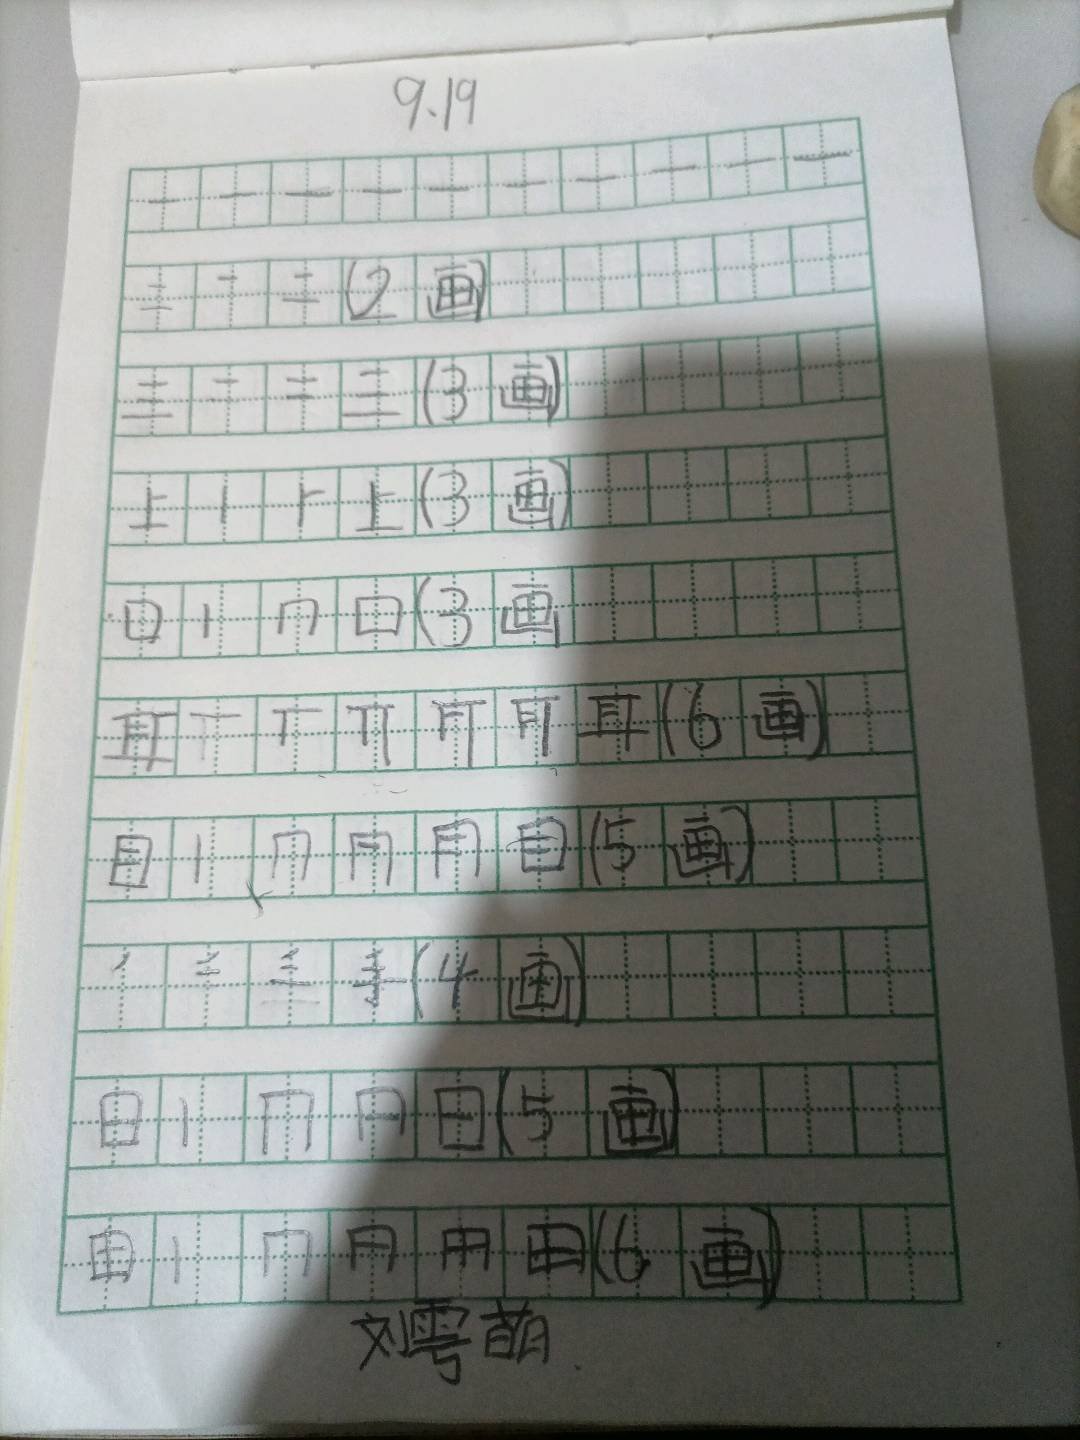 9.19
一 一 一 一 一 一 一 一 一 一
二 一 二 (2画)
三 一 二 三 (3画)
上 丨 ⺊ 上 (3画)
口 丨 冂 口 (3画
耳 一 丅 耳 (6画)
目 丨 冂 目 (5画)
丶 手 (4画)
日 丨 冂 日 (5画)
田 丨 冂 田 (6画)
刘雩萌